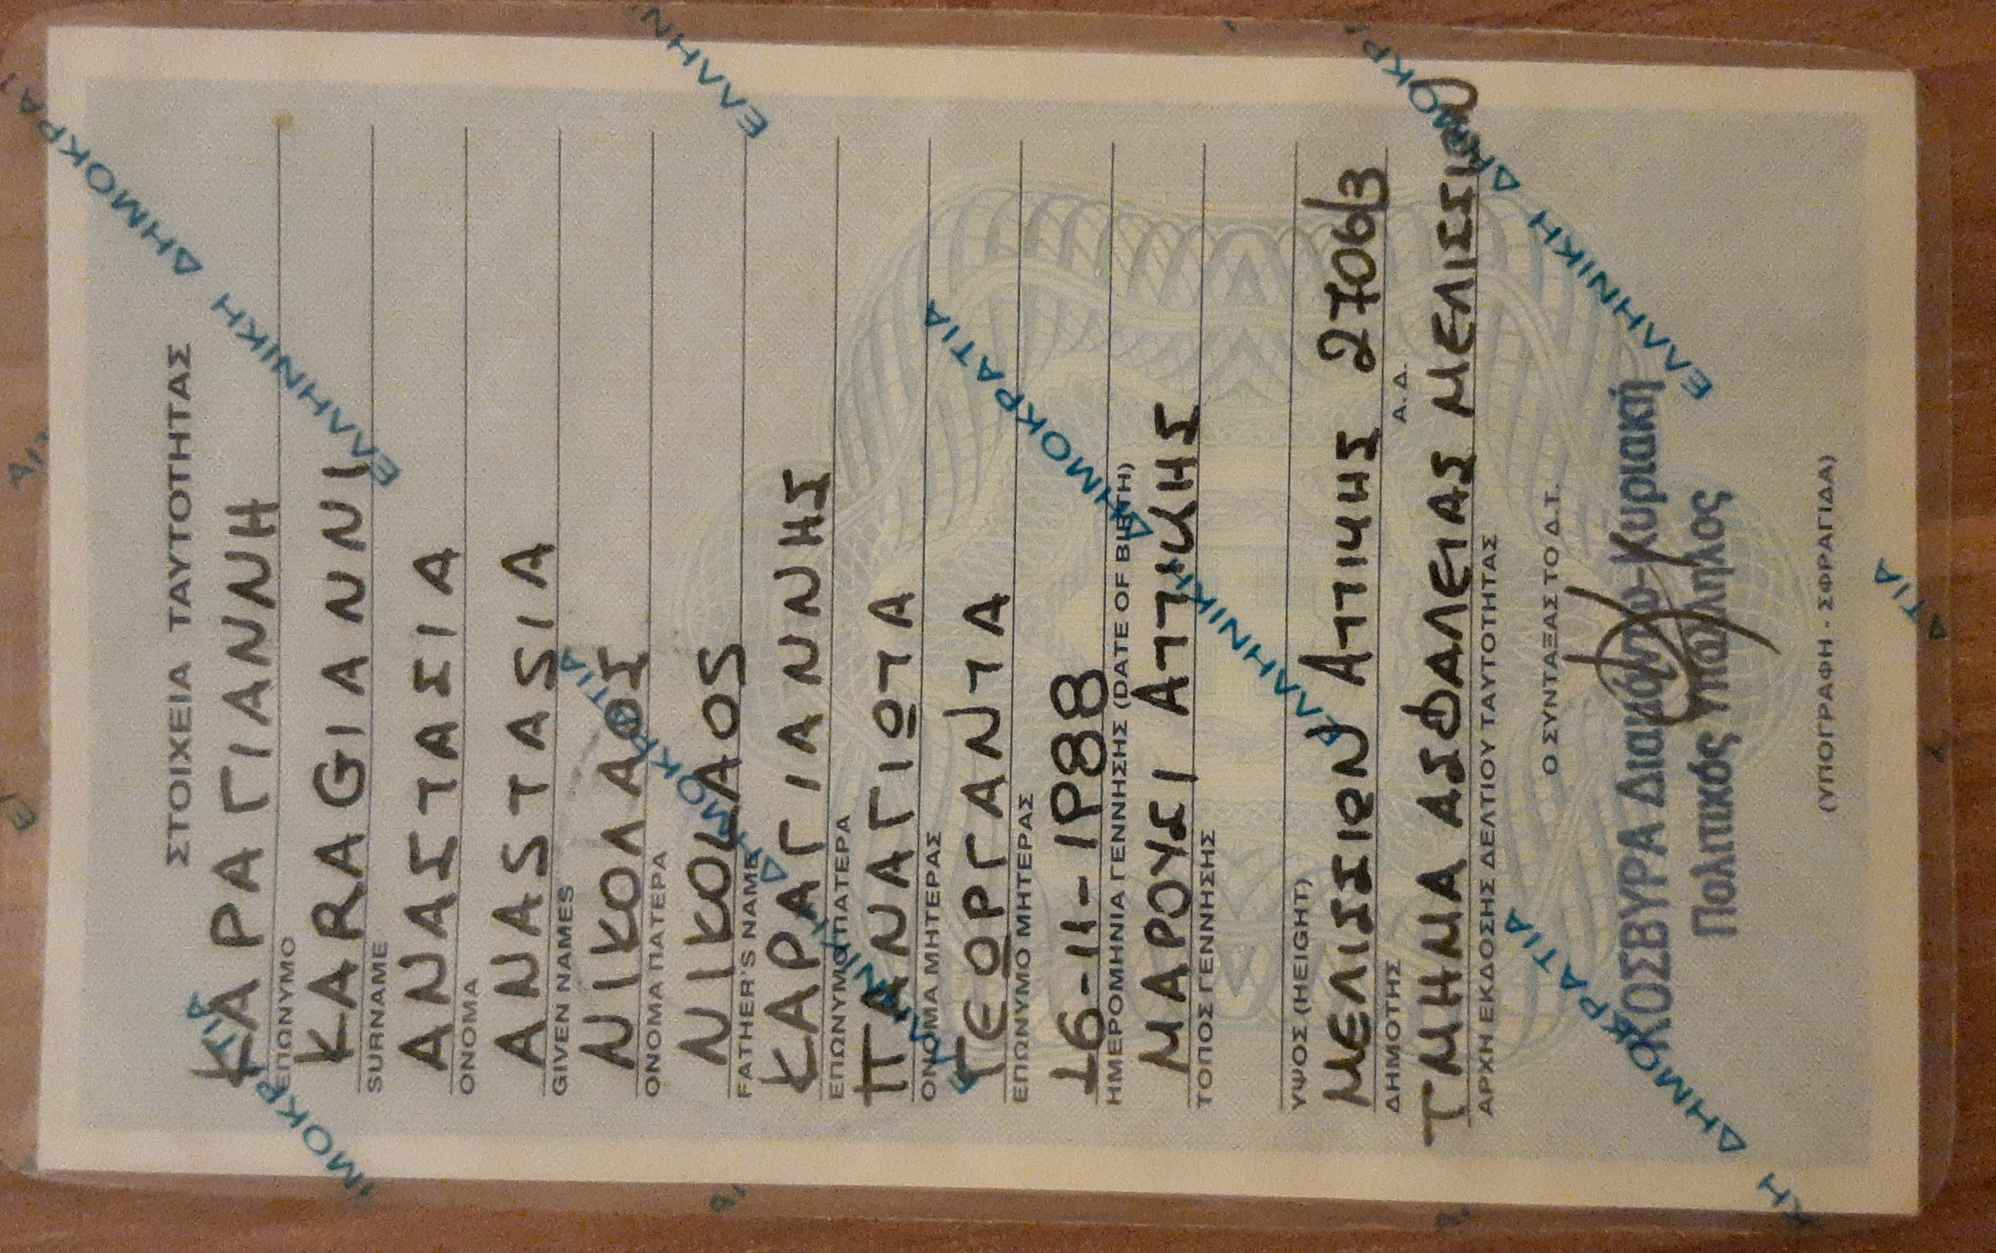 ΣΤΟΙΧΕΙΑ ΤΑΥΤΟΤΗΤΑΣ
ΚΑΡΑΓΙΑΝΝΗ
ΕΠΩΝΥΜΟ
KARAGIANNI
SURNAME
ΑΝΑΣΤΑΣΙΑ
ΟΝΟΜΑ
ANASTASIA
GIVEN NAMES
ΝΙΚΟΛΑΟΣ
ΟΝΟΜΑ ΠΑΤΕΡΑ
NIKOLAOS
FATHER'S NAME
ΚΑΡΑΓΙΑΝΝΗΣ
ΕΠΩΝΥΜΟ ΠΑΤΕΡΑ
ΠΑΝΑΓΙΩΤΑ
ΟΝΟΜΑ ΜΗΤΕΡΑΣ
ΓΕΩΡΓΑΝΤΑ
ΕΠΩΝΥΜΟ ΜΗΤΕΡΑΣ
16-11-1988
ΗΜΕΡΟΜΗΝΙΑ ΓΕΝΝΗΣΗΣ (DATE OF BIRTH)
ΜΑΡΟΥΣΙ ΑΤΤΙΚΗΣ
ΤΟΠΟΣ ΓΕΝΝΗΣΗΣ
ΥΨΟΣ (HEIGHT)
ΜΕΛΙΣΣΙΩΝ ΑΤΤΙΚΗΣ 2706/3
ΔΗΜΟΤΗΣ Α.Δ.
ΤΜΗΜΑ ΑΣΦΑΛΕΙΑΣ ΜΕΛΙΣΣΙΩΝ
ΑΡΧΗ ΕΚΔΟΣΗΣ ΔΕΛΤΙΟΥ ΤΑΥΤΟΤΗΤΑΣ
Ο ΣΥΝΤΑΞΑΣ ΤΟ Δ.Τ.
ΚΟΣΒΥΡΑ Διαμάντω-Κυριακή
Πολιτικός Υπάλληλος
(ΥΠΟΓΡΑΦΗ - ΣΦΡΑΓΙΔΑ)
ΕΛΛΗΝΙΚΗ ΔΗΜΟΚΡΑΤΙΑ
ΕΛΛΗΝΙΚΗ ΔΗΜΟΚΡΑΤΙΑ
ΕΛΛΗΝΙΚΗ ΔΗΜΟΚΡΑΤΙΑ
ΕΛΛΗΝΙΚΗ ΔΗΜΟΚΡΑΤΙΑ
ΔΗΜΟΚΡΑΤΙΑ